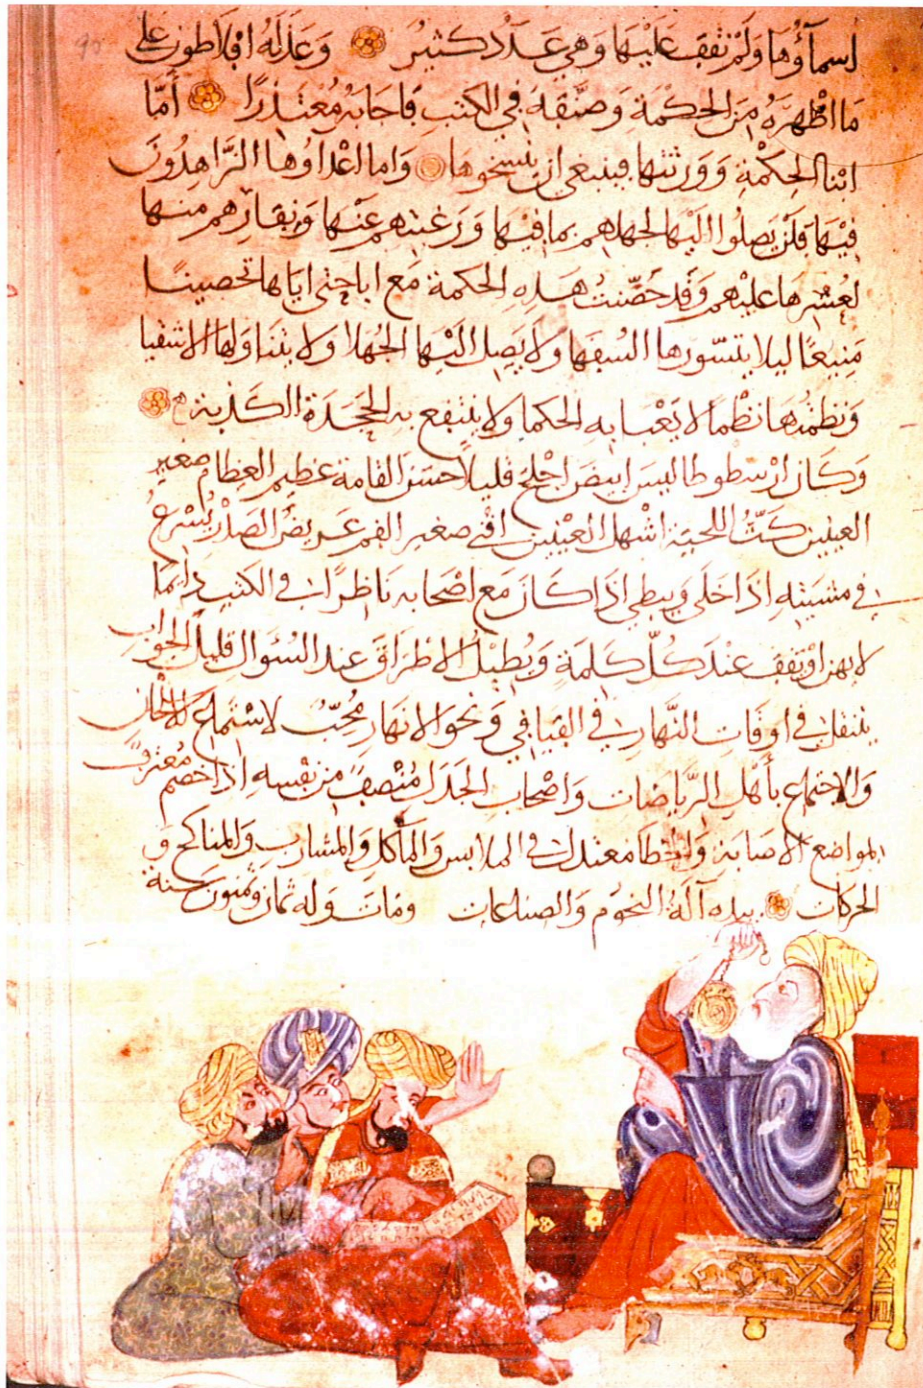 90
اسمآؤها ولم نقف عليها وهي عدد كثير وعذله افلاطون على
ما اظهره من الحكمة وصنفه في الكتب فاجابه معتذرًا أمّا
ابنا الحكمة وورثتها فينبغي ان ينسخوها واما اعداوها الزاهدون
فيها فلن يصلوا اليها لجهلهم بما فيها ورغبتهم عنها ونفارهم منها
لعسرها عليهم وقد حصنت هذه الحكمة مع اباحتي اياها تحصينا
منيعًا ليلا يتسورها السفها ولا يصل اليها الجهلا ولا يتناولها الاشقيا
ونظمتها نظمًا لا يعبا به الحكما ولا ينتفع به الجحدة الكذبة
وكان ارسطوطاليس ابيض اجلح قليلا حسن القامة عظيم العظام صغير
العينين كث اللحية اشهل العينين اقنى صغير الفم عريض الصدر يسرع
في مشيته اذا خلى ويبطي اذا كان مع اصحابه ناظرًا في الكتب دايما
لا يهذا ويقف عند كل كلمة ويطيل الاطراق عند السؤال قليل الجواب
يتنقل في اوقات النهار في الفيافي ونحو الانهار محب لاستماع الالحان
والاجتماع بأهل الرياضات واصحاب الجدل منصف من نفسه اذا خصم معترف
بمواضع الاصابة والخطا معتدل في الملابس والمآكل والمشارب والمناكح و
الحركات بيده آلة النجوم والصناعات ومات وله ثمان وستون سنة